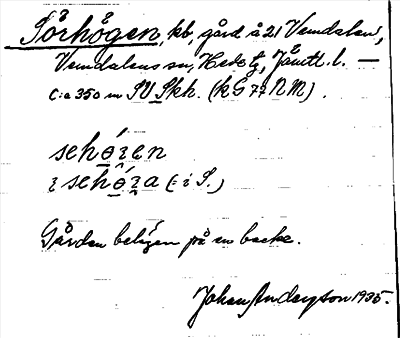 Sörhögen, kb, gård å 21 Vemdalen,
Vemdalens sn, Hede tg, Jämtl. l. —
c:a 350 m SV Skh. (k G 77 N M).
i S.)
Gården belägen på en backe.
Johan Anderson 1935.